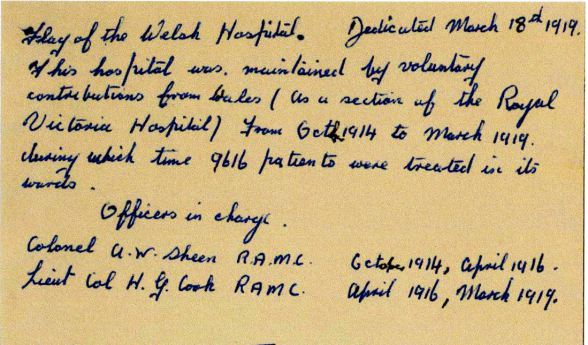 Flag of the Welsh Hospital. Dedicated March 18th 1919.
This hospital was. maintained by voluntary
contributions from Wales (as a section of the Royal
Victoria Hospital) from Octr 1914 to March 1919.
during which time 9616 patients were treated in its
wards.
Officers in charge.
Colonel A.W. Sheen R.A.M.C. October 1914, April 1916.
Lieut Col H.G. Cook RAMC. April 1916, March 1919.